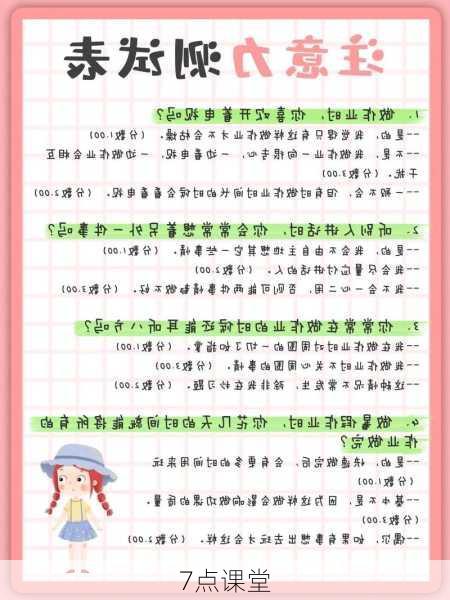 注意力测试表
1. 做作业时，你喜欢开着电视吗？
--是的，我觉得只有这样做作业才不会枯燥。（分数1.00）
--不是，我做作业一向很专心，一边看电视，一边做作业会相互
干扰。（分数3.00）
--一般不会，但有时做作业时间长的时候会看看电视。（分数2.00）
2. 听别人讲话时，你会常常想着另外一件事吗？
--是的，我会不由自主地想其它一些事情。（分数1.00）
--我会尽量应付讲话的人。（分数2.00）
--我不会一心二用，否则可能两件事情都做不好。（分数3.00）
3. 你常常在做作业的时候还能耳听八方吗？
--我在做作业时对周围的一切了如指掌。（分数1.00）
--我做作业时不关心周围的事情。（分数3.00）
--这种情况不常发生，除非我在抄习题。（分数2.00）
4. 做暑假作业时，你花几天的时间就能将所有的
作业做完？
--是的，快速做完后，会有更多的时间用来玩
（分数1.00）
--基本不是，因为这样做会影响做功课的质量。
（分数3.00）
--偶尔，如果有事想出去玩才会这样。（分数2.00）
7点课堂